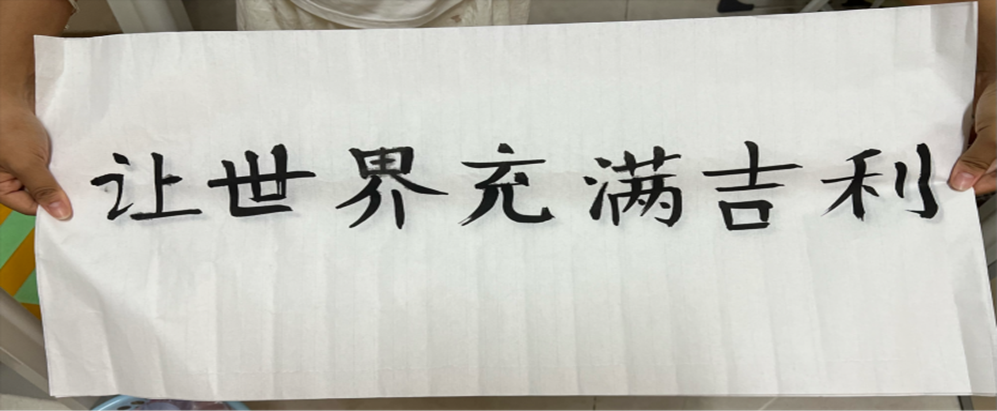 让世界充满吉利